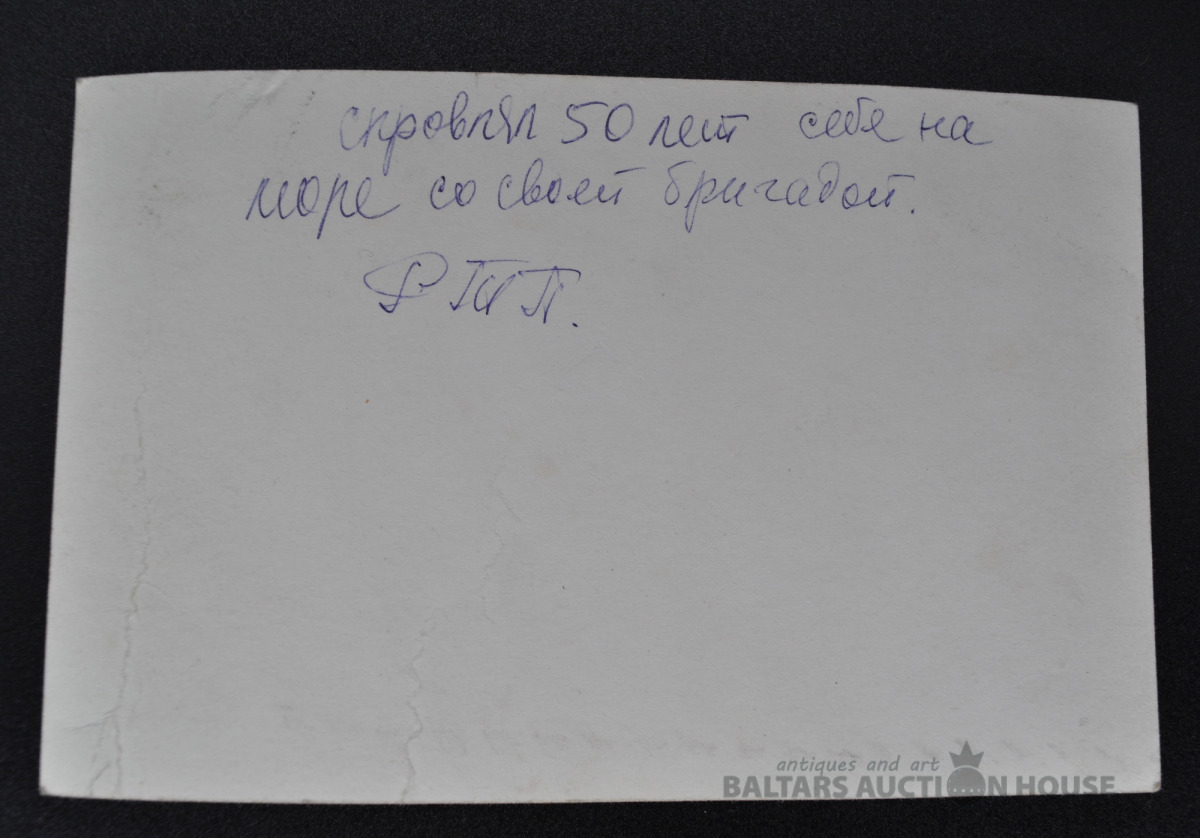 справлял 50 лет себе на
море со своей бригадой.
РТП.
antiques and art
BALTARS AUCTION HOUSE